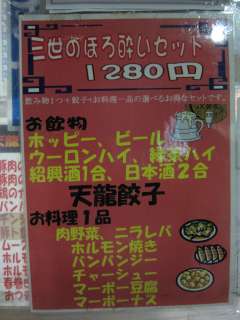 三世のほろ酔いセット
1280円
飲み物1つ+餃子+お料理一品の選べるお得なセットです。
お飲物
ホッピー、ビール
ウーロンハイ、緑茶ハイ
紹興酒1合、日本酒2合
天龍餃子
お料理1品
肉野菜、ニラレバ
ホルモン焼き
バンバンジー
チャーシュー
マーボー豆腐
マーボーナス